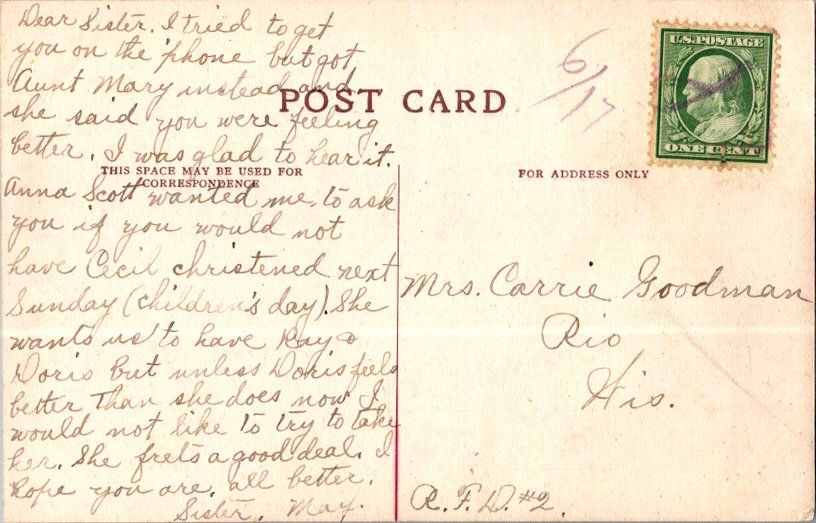 Dear Sister. I tried to get
you on the 'phone but got
Aunt Mary instead and
she said you were feeling
better. I was glad to hear it.
Anna Scott wanted me to ask
you if you would not
have Cecil christened next
Sunday (children's day). She
wants us to have Ray &
Doris but unless Doris feels
better than she does now I
would not like to try to take
her. She frets a good deal. I
hope you are all better.
Sister. May.
POST CARD
THIS SPACE MAY BE USED FOR
CORRESPONDENCE
6/17
U.S. POSTAGE
ONE CENT
FOR ADDRESS ONLY
Mrs. Carrie Goodman
Rio
Wis.
R. F. D. #2.